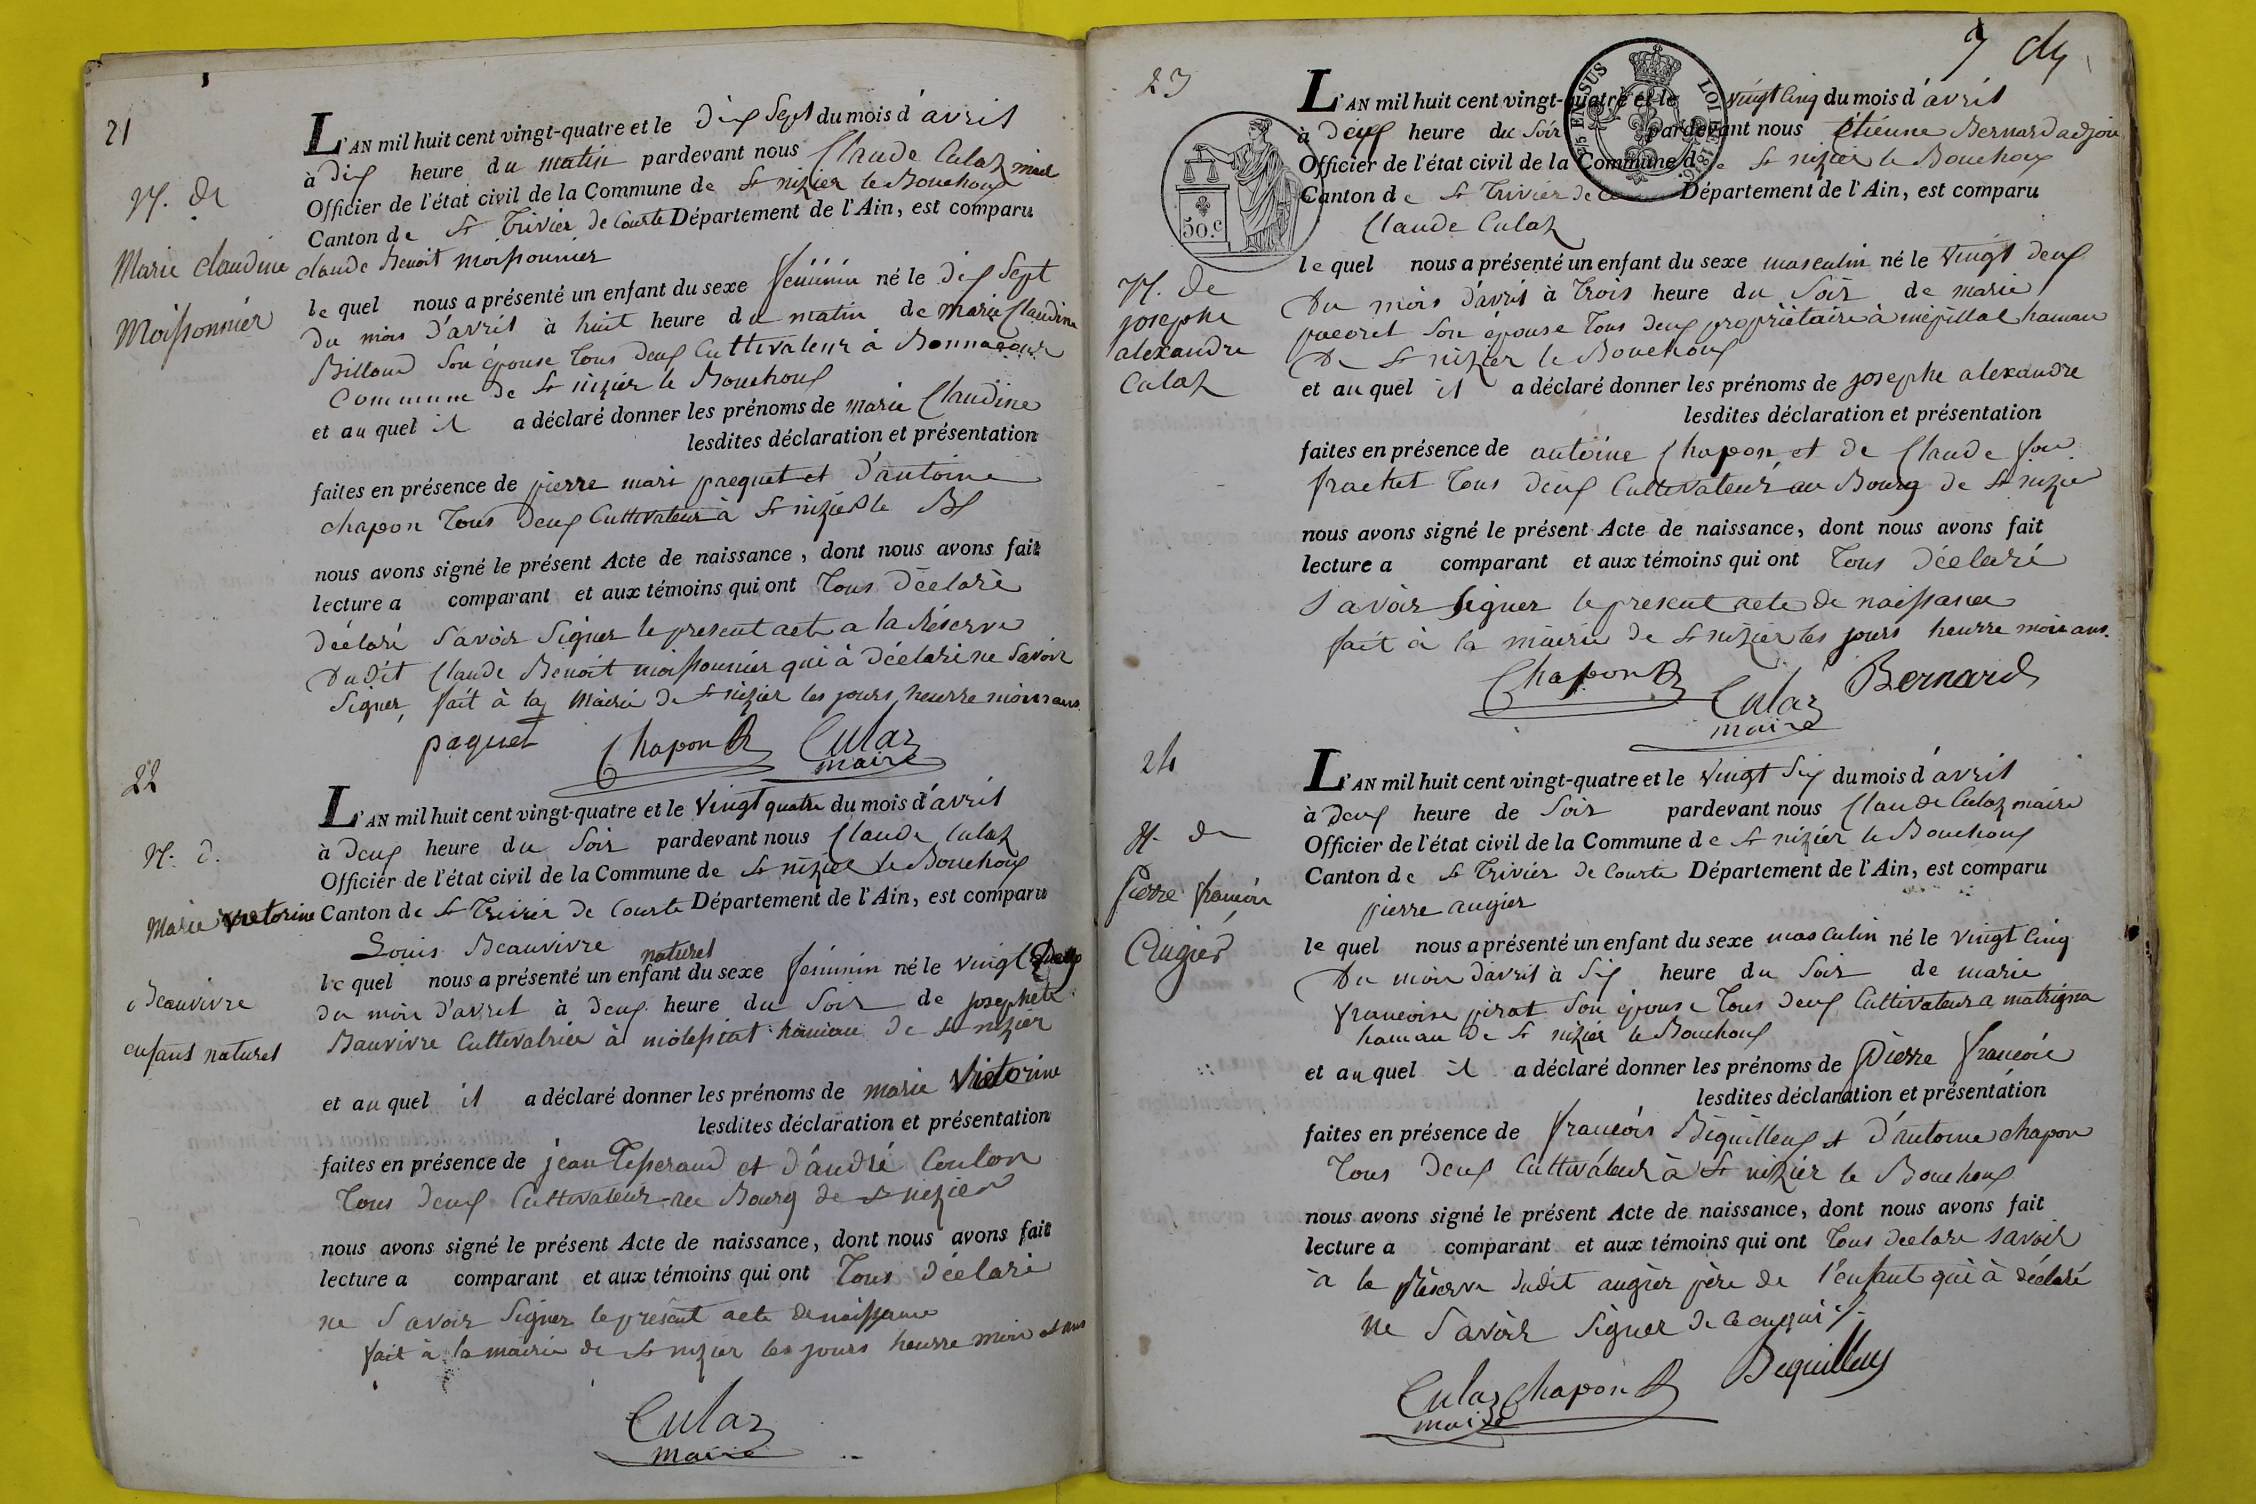 21
N. de
Marie claudine
Moissonnier
L'AN mil huit cent vingt-quatre et le dix sept du mois d'avril
à dix heure du matin pardevant nous Claude Culaz maire
Officier de l'état civil de la Commune de St nizier le Bouchoux
Canton de St Trivier de Courte Département de l'Ain, est comparu
claude Benoit moissonnier
le quel nous a présenté un enfant du sexe féminin né le dix sept
du mois d'avril à huit heure du matin de marie Claudine
Billoud son épouse tous deux Cultivateur à Bonnacour
Commune de St nizier le Bouchoux
et au quel il a déclaré donner les prénoms de marie Claudine
lesdites déclaration et présentation
faites en présence de pierre mari pacquet et d'antoine
chapon tous deux Cultivateur à St nizier le Bx
nous avons signé le présent Acte de naissance, dont nous avons fait
lecture a comparant et aux témoins qui ont tous déclaré
déclaré savoir signer le present acte a la réserve
dudit Claude Benoit moissonnier qui à déclaré ne savoir
signer, fait à la mairie de St nizier les jours, heurre mois et ans
paquet Chapon Culaz
maire
22
N. d.
Marie victorine
Beauvivre
enfant naturel
L'AN mil huit cent vingt-quatre et le vingt quatre du mois d'avril
à deux heure du soir pardevant nous Claude Culaz
Officier de l'état civil de la Commune de St nizier le Bouchoux
Canton de St Trivier de Courte Département de l'Ain, est comparu
Louis Beauvivre
naturel
le quel nous a présenté un enfant du sexe féminin né le vingt deux
du mois d'avril à deux heure du soir de josephete
Bauvivre Cultivatrice à molepiat hameau de St nizier
et au quel il a déclaré donner les prénoms de marie victorine
lesdites déclaration et présentation
faites en présence de jean Tisseraud et d'andré Coulon
tous deux Cultivateur au Bourg de St nizier
nous avons signé le présent Acte de naissance, dont nous avons fait
lecture a comparant et aux témoins qui ont tous déclaré
ne savoir signer le présent acte de naissance
fait à la mairie de St nizier les jours heurre mois et ans
Culaz
maire
7
23
50.c
EN SUS
LOI DE 1816.
N. de
josephe
alexandre
Culaz
L'AN mil huit cent vingt-quatre et le vingt cinq du mois d'avril
à deux heure du soir pardevant nous étienne Bernard adjoin
Officier de l'état civil de la Commune de St nizier le Bouchoux
Canton de St Trivier de Département de l'Ain, est comparu
Claude Culaz
le quel nous a présenté un enfant du sexe masculin né le vingt deux
du mois d'avril à trois heure du soir de marie
pacoret son épouse tous deux propriétaire à mépillat hameau
de St nizier le Bouchoux
et au quel il a déclaré donner les prénoms de josephe alexandre
lesdites déclaration et présentation
faites en présence de antoine Chapon et de Claude
frachet tous deux Cultivateur au Bourg de St nizie
nous avons signé le présent Acte de naissance, dont nous avons fait
lecture a comparant et aux témoins qui ont tous déclaré
savoir signer le present acte de naissance
fait à la mairie de St nizier les jours heurre mois ans.
Chapon Culaz Bernard
maire
24
N. de
Pierre francois
Augier
L'AN mil huit cent vingt-quatre et le vingt six du mois d'avril
à deux heure de soir pardevant nous Claude Culaz maire
Officier de l'état civil de la Commune de St nizier le Bouchoux
Canton de St Trivier de Courte Département de l'Ain, est comparu
pierre augier
le quel nous a présenté un enfant du sexe masculin né le vingt cinq
du mois d'avril à six heure du soir de marie
francoise pirat son épouse tous deux Cultivateur a matrigna
hameau de St nizier le Bouchoux
et au quel il a déclaré donner les prénoms de pierre francois
lesdites déclaration et présentation
faites en présence de francois Béquilleux et d'antoine chapon
tous deux Cultivateur à St nizier le Bouchoux
nous avons signé le présent Acte de naissance, dont nous avons fait
lecture a comparant et aux témoins qui ont tous declare savoir
à la réserve dudit augier père de l'enfant qui à déclaré
ne savoir signer de ce enquis
Culaz Chapon Bequilleux
maire